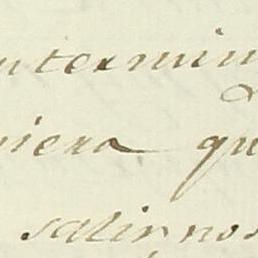 utermin
niera qu
salir nos